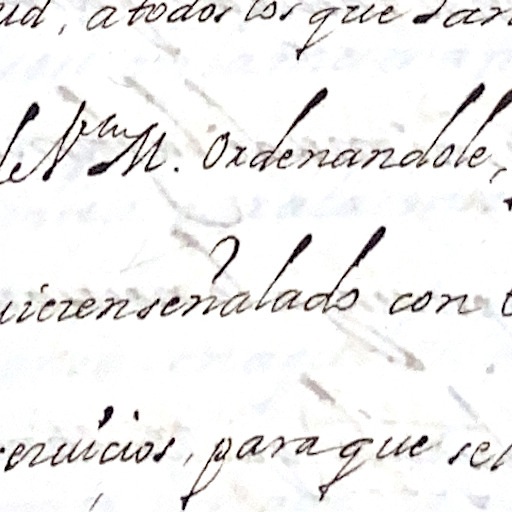 ud, a todos los que san
de N̅ra M. Ordenandole,
uieren señalado con
servicios, para que se